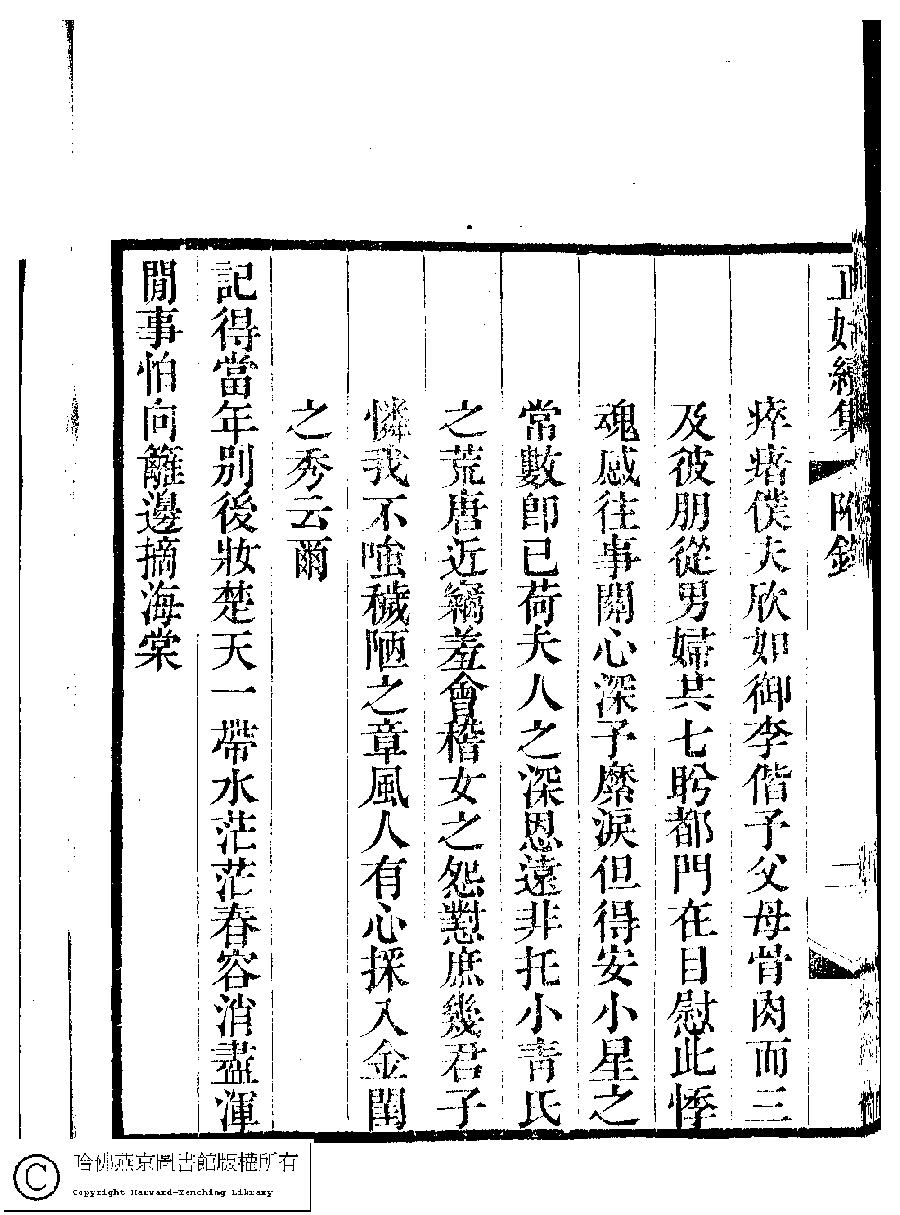 正始續集 附錄 二
瘁瘏僕夫欣如御李偕子父母骨肉而三
及彼朋從男婦共七盻都門在目慰此悸
魂感往事關心深予縻淚但得安小星之
常數卽已荷夫人之深恩遠非托小靑氏
之荒唐近竊羞會稽女之怨懟庶幾君子
憐我不嗤穢陋之章風人有心採入金閨
之秀云爾
記得當年別後妝楚天一帶水茫茫春容消盡渾
閒事怕向籬邊摘海棠
哈佛燕京圖書館版權所有
Copyright Harvard-Yenching Library